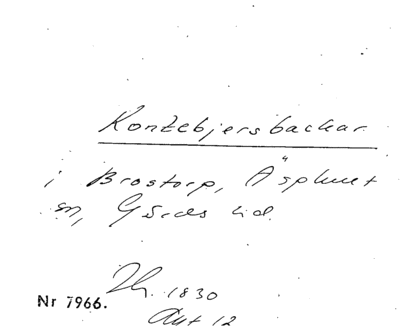 Kontebjersbackar
i Brostorp, Äsphult
sn, Gärds hd.
Nr 7966.
1830
Akt 12